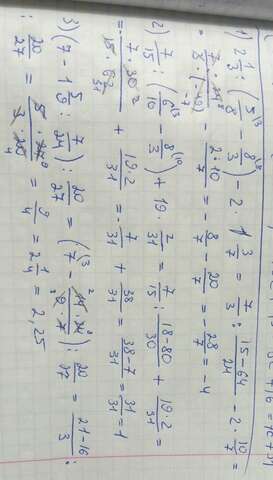 1) 2 1/3 : (5/8 - 8/3) - 2 · 1 3/7 = 7/3 : (15-64)/24 - 2 · 10/7 =
- 2·10/7 = - 8/7 - 20/7 = - 28/7 = -4
2) 7/15 : (6/10 - 8/3) + 19 · 2/31 = 7/15 : (18-80)/30 + 19·2/31 =
= - 7·30/(15·62) + 19·2/31 = - 7/31 + 38/31 = (38-7)/31 = 31/31 = 1
3) (7 - 1 5/9 : 7/24) : 20/27 = (7 - 14·24/(9·7)) : 20/27 = (21-16)/3 :
20/27 = 5·27/(3·20) = 9/4 = 2 1/4 = 2,25